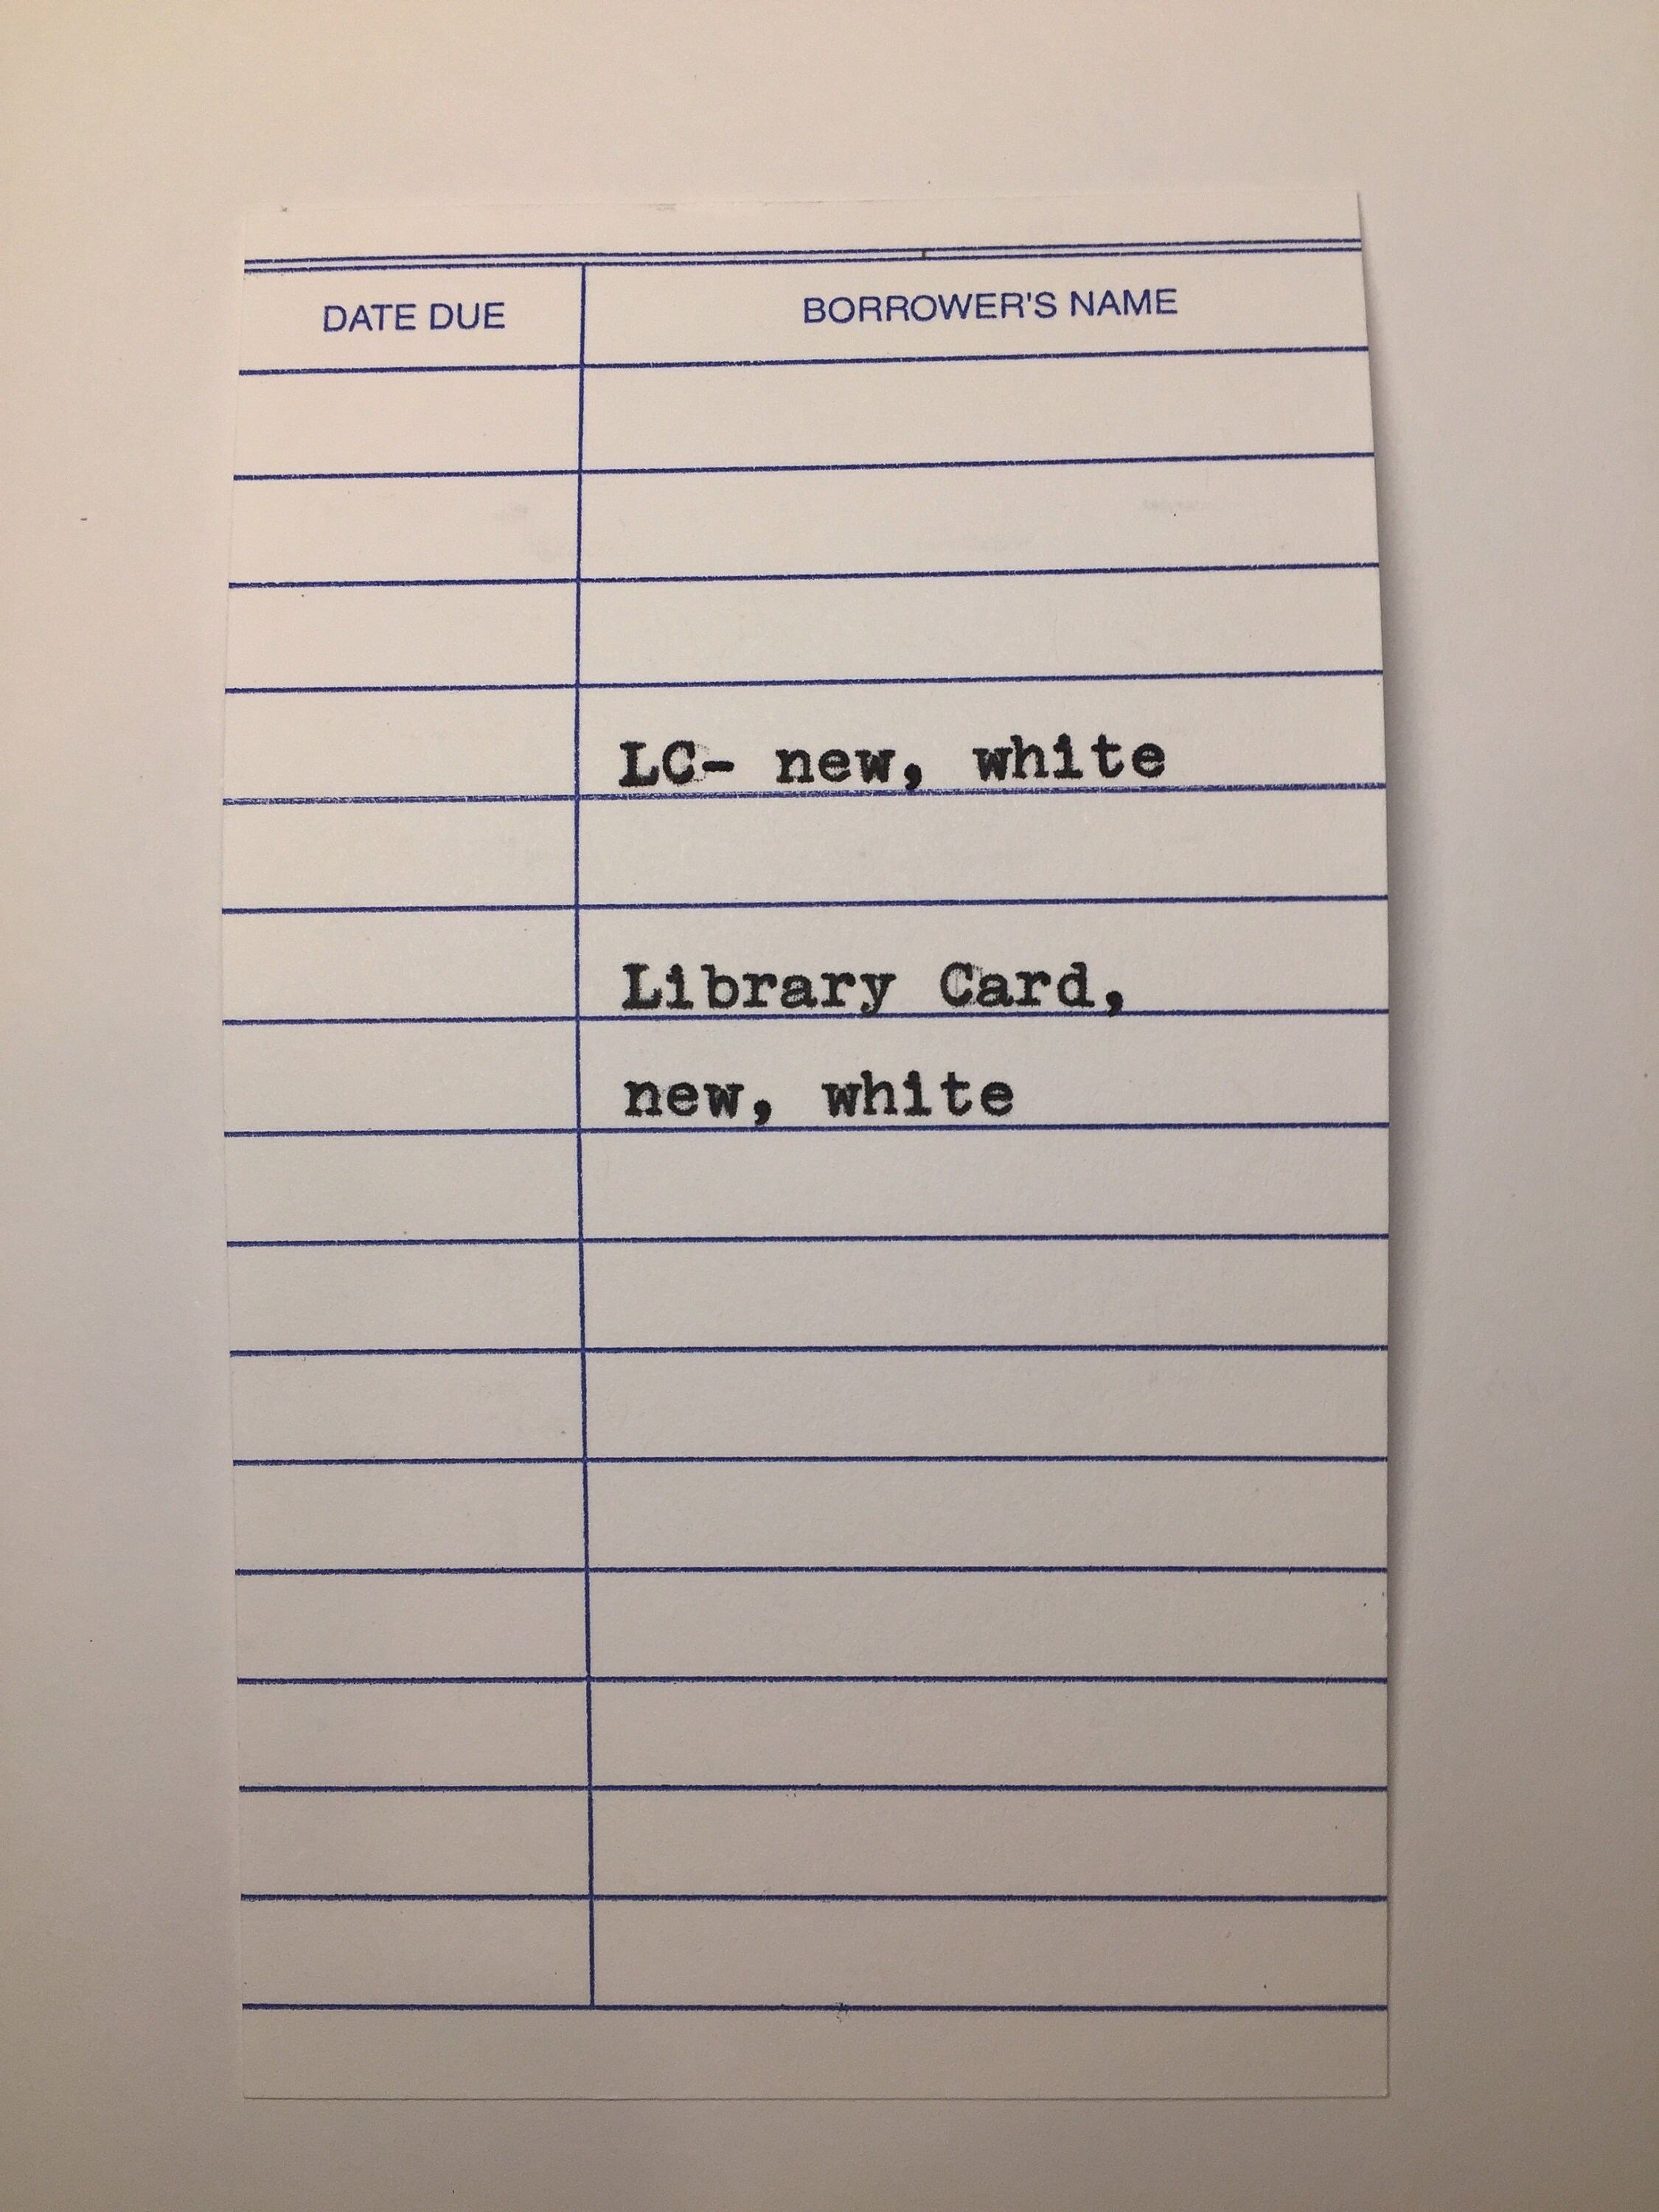 DATE DUE BORROWER'S NAME
LC- new, white
Library Card,
new, white